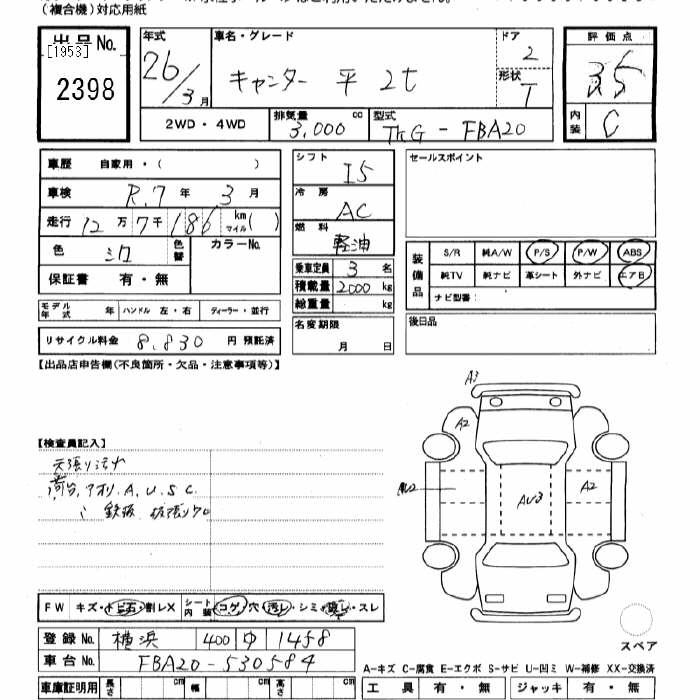 （複合機）対応用紙
出品No.
[1953]
2398
年式 車名・グレード ドア 評価点
26/3月 キャンター 平 2t 2 3.5
形状 T
内装 C
2WD・4WD 排気量 3,000 cc 型式 TKG-FBA20
車歴 自家用・（ ）
車検 R.7年 3月
走行 12万7千186 km マイル（ ）
色 シロ 色替 カラーNo.
保証書 有・無
モデル年式 年 ハンドル 左・右 ディーラー・並行
リサイクル料金 8,830 円 預託済
シフト I5
冷房 AC
燃料 軽油
乗車定員 3 名
積載量 2000 kg
総重量 kg
名変期限 月 日
セールスポイント
装備品 S/R 純A/W P/S P/W ABS
純TV 純ナビ 革シート 外ナビ エアB
ナビ型番：
後日品
【出品店申告欄（不良箇所・欠品・注意事項等）】
A3
A2
AU2 AU3 A2
【検査員記入】
天張り汚れ
荷台、アオリ、A、U、S、C
〃 鉄板 板張り
FW キズ・トビ石・割レX シート内装 コゲ・穴・汚レ・シミ・破レ・スレ
登録No. 横浜 400 ゆ 1458
車台No. FBA20-530584
車庫証明用 長さ cm 幅 cm 高さ cm
スペア
A-キズ C-腐食 E-エクボ S-サビ U-凹ミ W-補修 XX-交換済
工具 有・無 ジャッキ 有・無